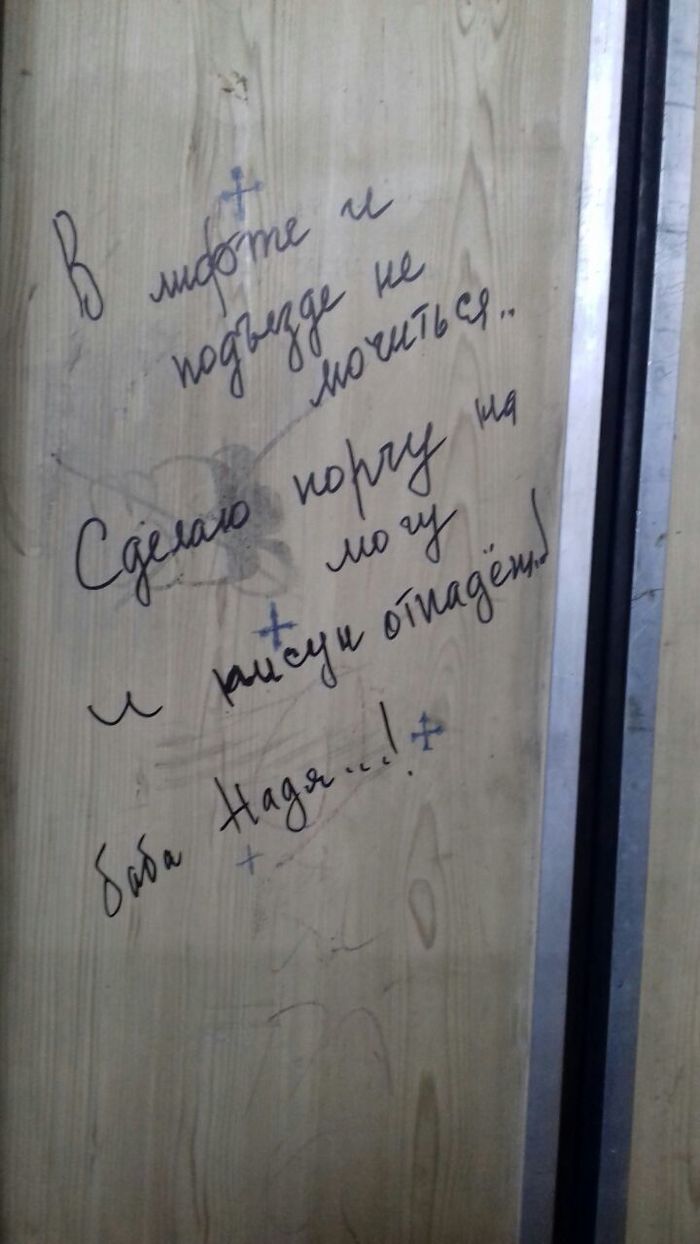 В лифте и
подъезде не
мочиться..
Сделаю порчу на
мочу
и писун отпадёт..!
баба Надя...!